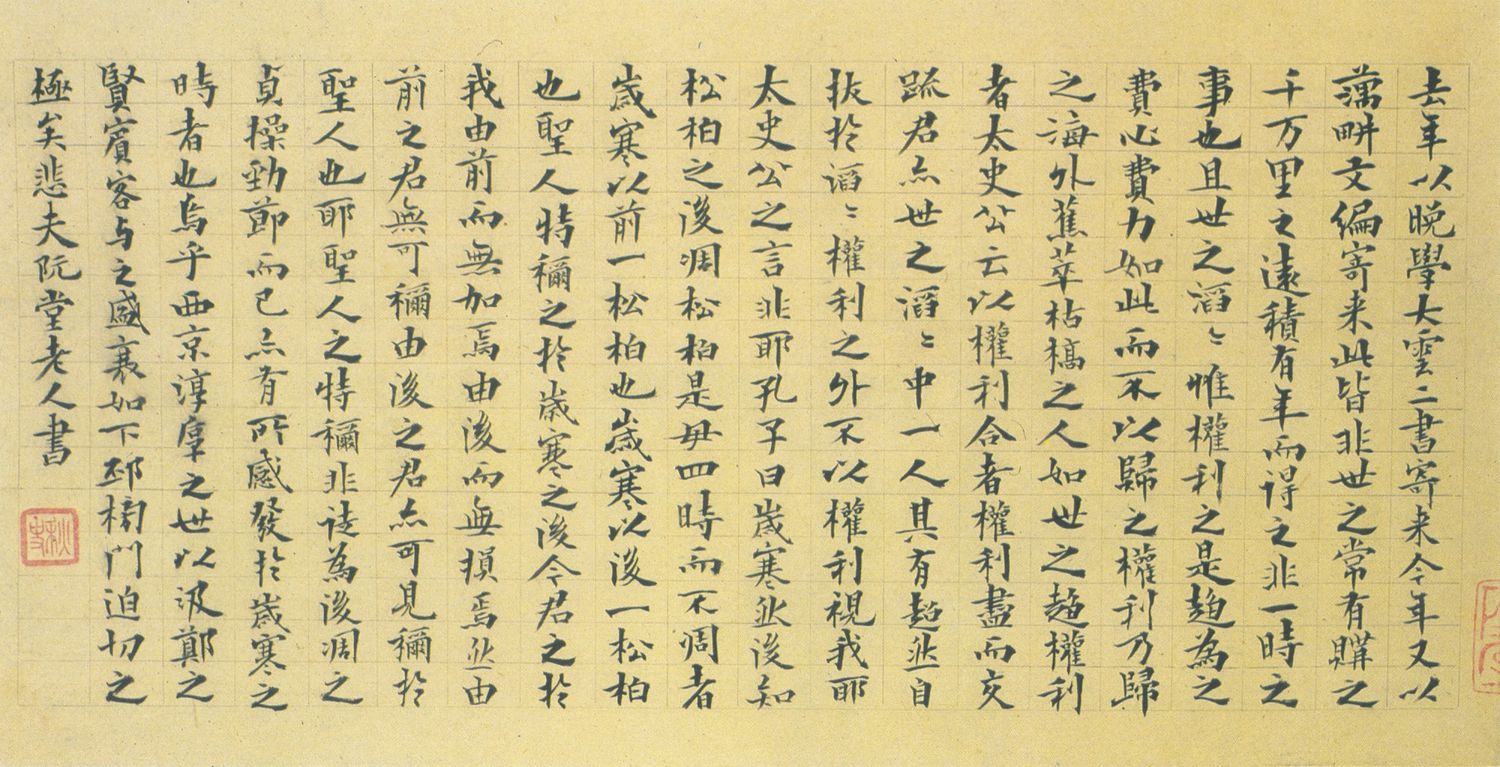 去年以晚學大雲二書寄来今年又以
藕畊文編寄来此皆非世之常有購之
千万里之遠積有年而得之非一時之
事也且世之滔〻惟權利之是趍為之
費心費力如此而不以歸之權利乃歸
之海外蕉萃枯槁之人如世之趍權利
者太史公云以權利合者權利盡而交
踈君亦世之滔〻中一人其有超然自
拔於滔〻權利之外不以權利視我耶
太史公之言非耶孔子曰歲寒然後知
松柏之後凋松柏是毋四時而不凋者
歲寒以前一松柏也歲寒以後一松柏
也聖人特稱之於歲寒之後今君之於
我由前而無加焉由後而無損焉然由
前之君無可稱由後之君亦可見稱於
聖人也耶聖人之特稱非徒為後凋之
貞操勁節而已亦有所感發於歲寒之
時者也烏乎西京淳厚之世以汲鄭之
賢賓客与之盛衰如下邳榜門迫切之
極矣悲夫阮堂老人書
秋史